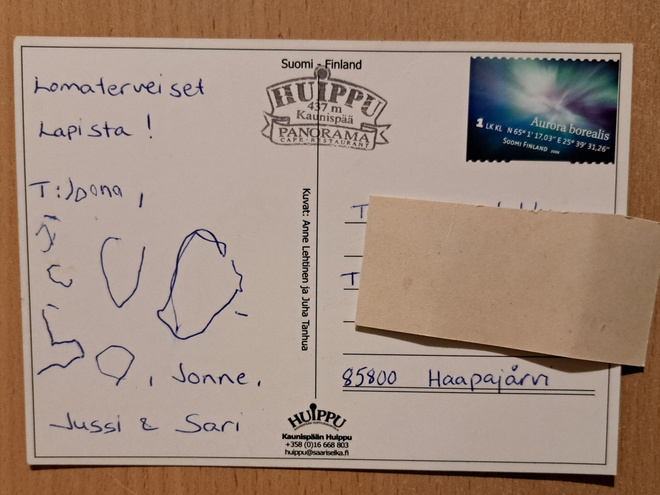 Suomi - Finland
HUIPPU
437 m
Kaunispää
PANORAMA
CAFE-RESTAURANT
Aurora borealis
1 LK KL N 65° 1' 17,03" E 25° 39' 31,26"
SUOMI FINLAND
Lomaterveiset
Lapista!
T: Joona,
, Jonne,
Jussi & Sari
Kuvat: Anne Lehtinen ja Juha Tanhua
T
T
85800 Haapajärvi
HUIPPU
Kaunispään Huippu
+358 (0)16 668 803
huippu@saariselka.fi